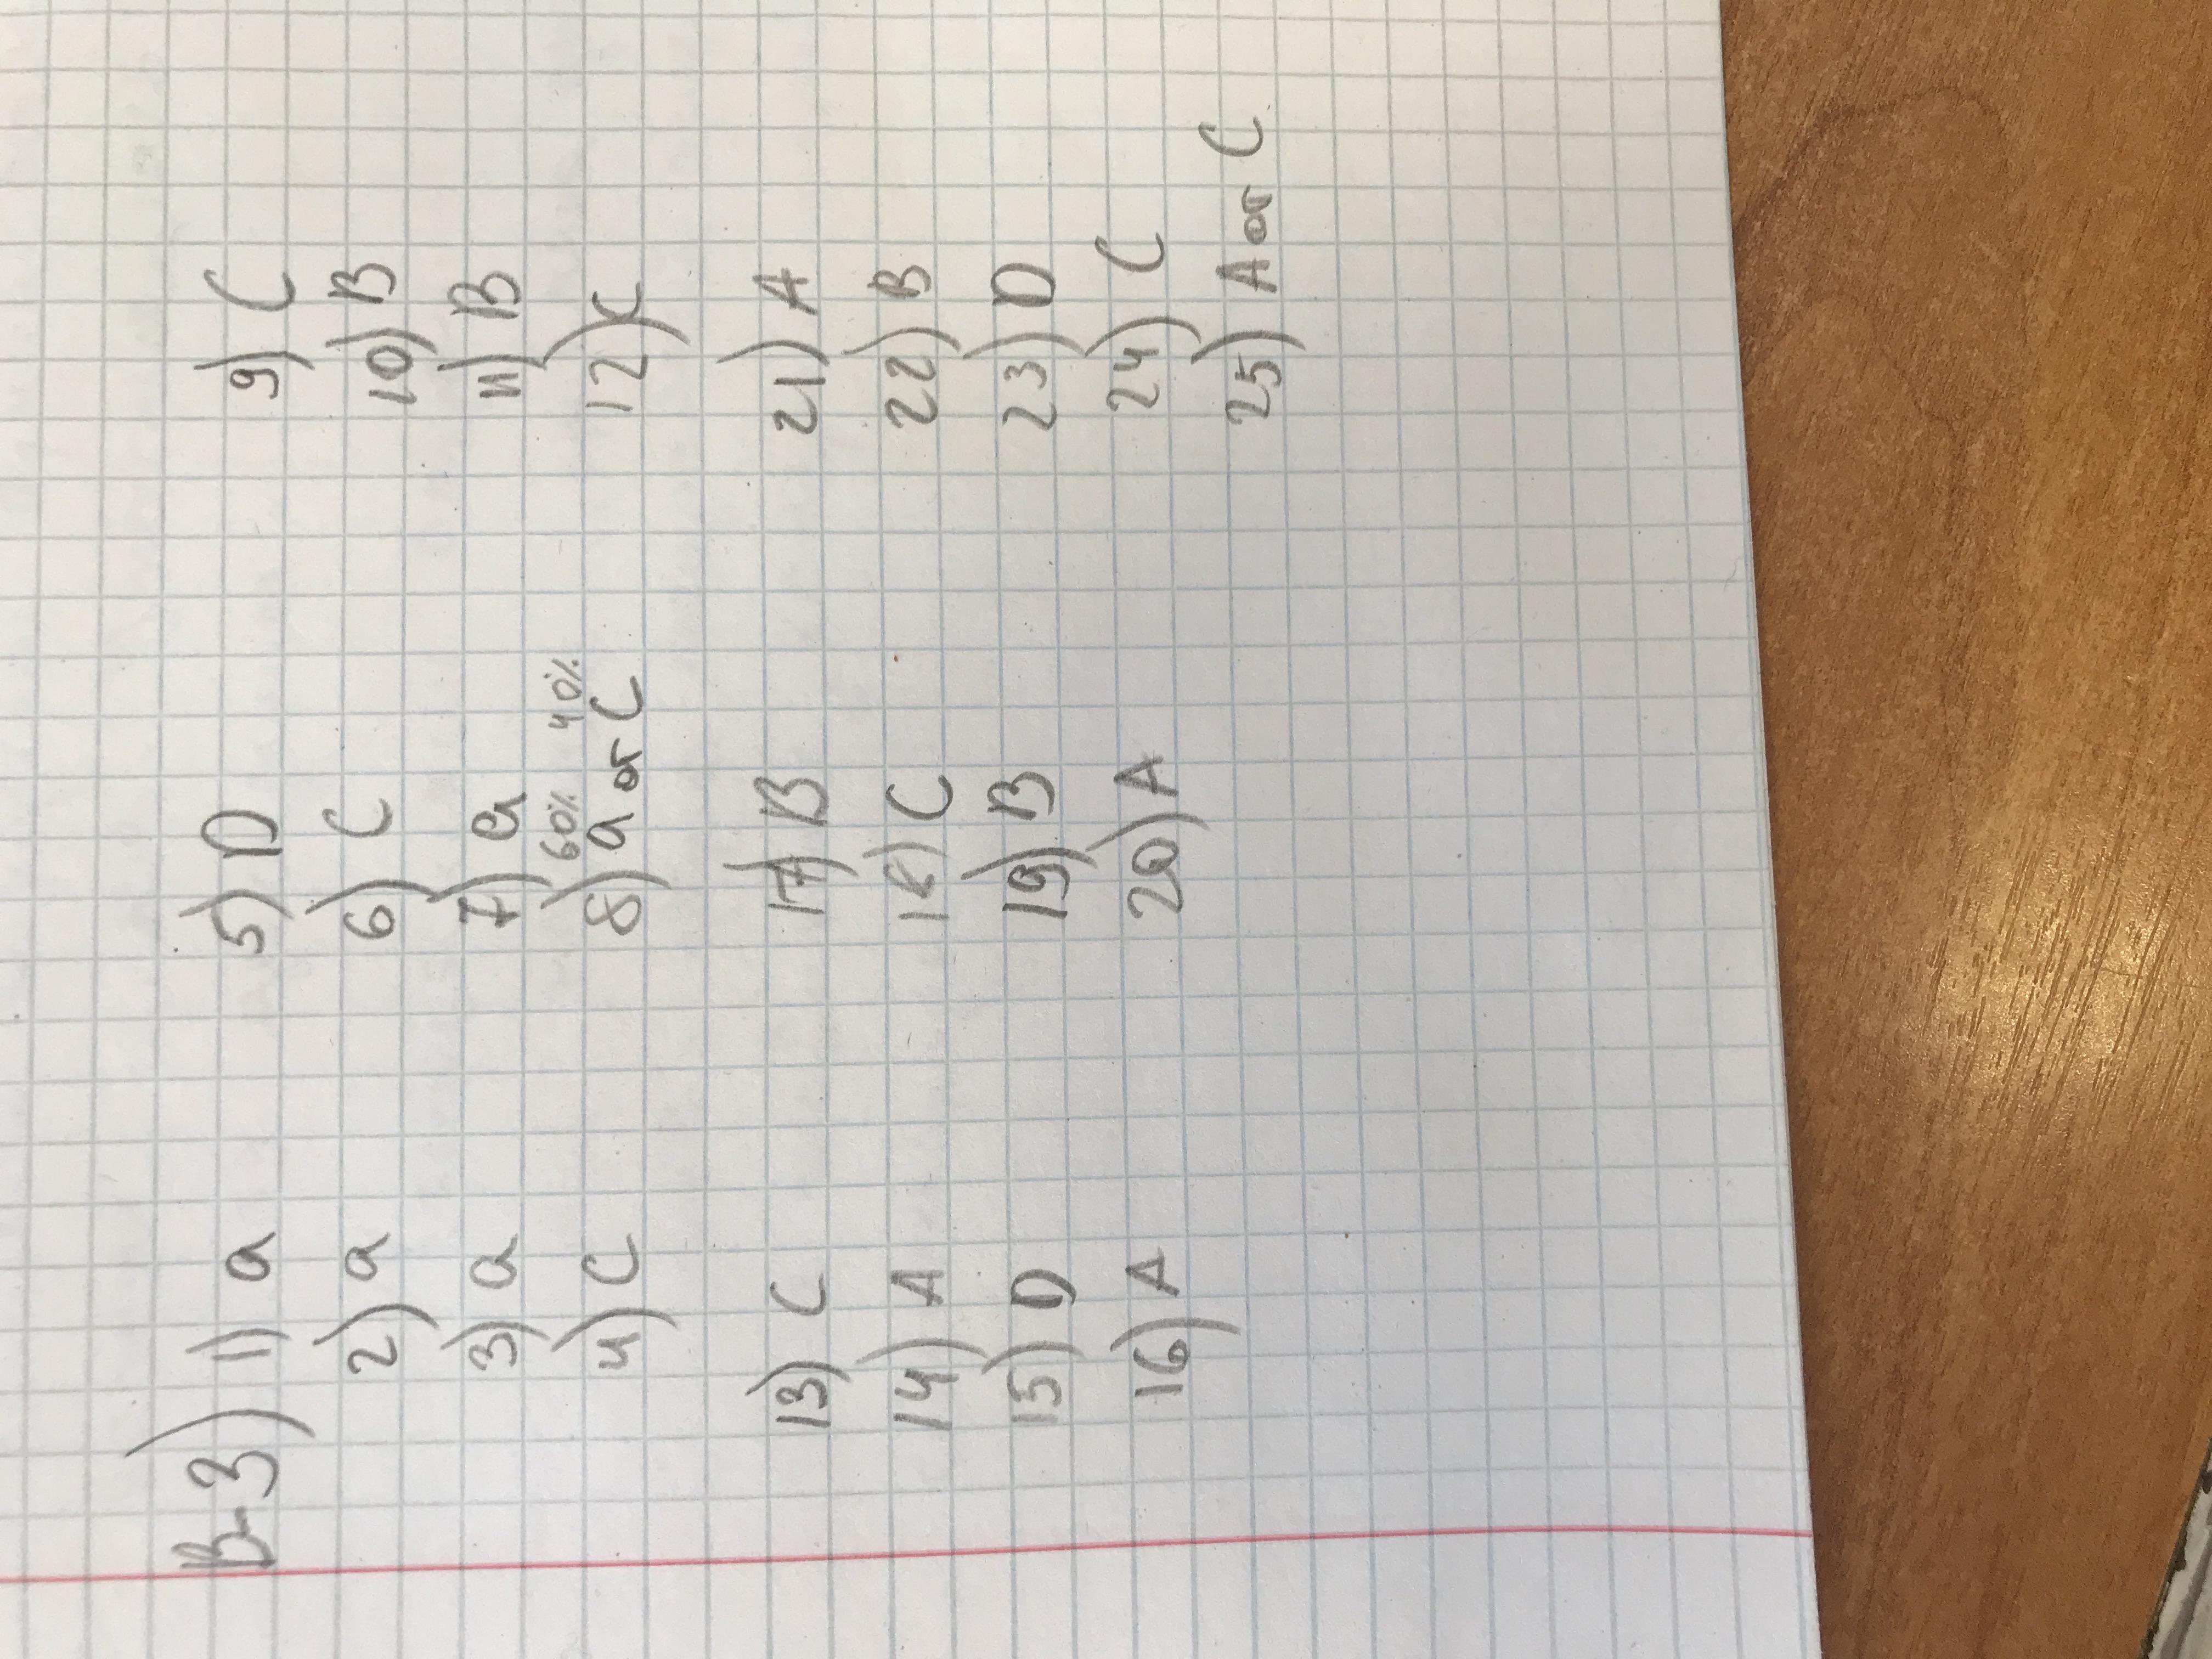 B-3) 1) a
2) a
3) a
4) C
5) D
6) C
7) a
60% 40%
8) a or C
9) C
10) B
11) B
12) C
13) C
14) A
15) D
16) A
17) B
18) C
19) B
20) A
21) A
22) B
23) D
24) C
25) A or C